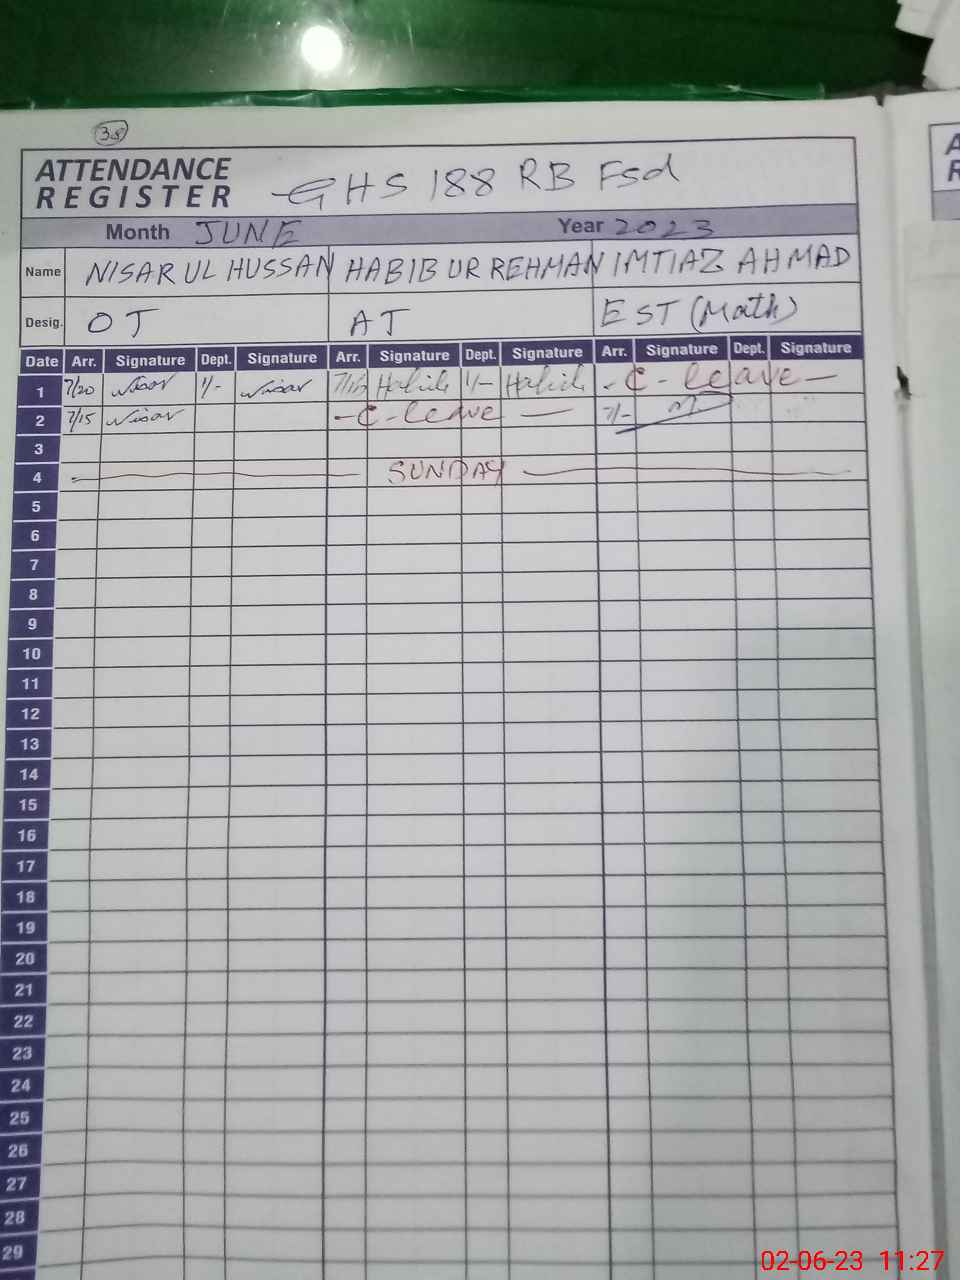 38
ATTENDANCE
REGISTER GHS 188 RB Fsd
Month JUNE Year 2023
Name NISAR UL HUSSAN HABIB UR REHMAN IMTIAZ AHMAD
Desig. OT AT EST (Math)
Date Arr. Signature Dept. Signature Arr. Signature Dept. Signature Arr. Signature Dept. Signature
1 7/20 Nisar 1/- Nisar Habib 1/- Habib - C - leave -
2 7/15 Nisar - C - leave - 7/-
3
4 SUNDAY
5
6
7
8
9
10
11
12
13
14
15
16
17
18
19
20
21
22
23
24
25
26
27
28
29
A
R
02-06-23 11:27